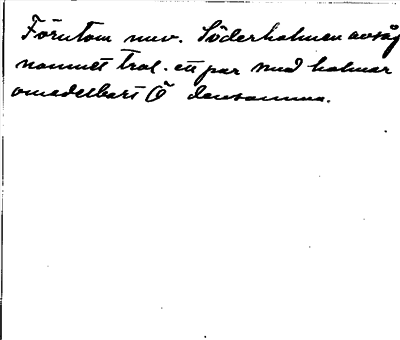 Förutom nuv. Söderholmen avsåg
namnet trol. ett par små holmar
omedelbart Ö densamma.